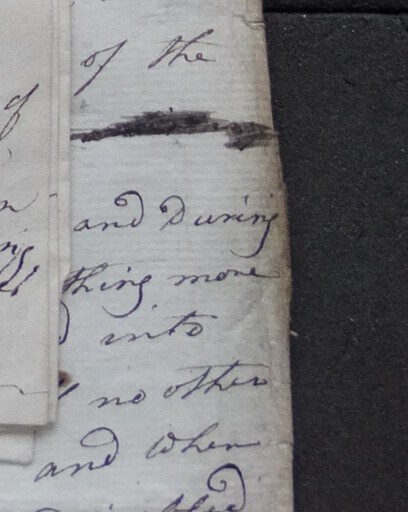 of the
and During
thing more
into
no other
and when